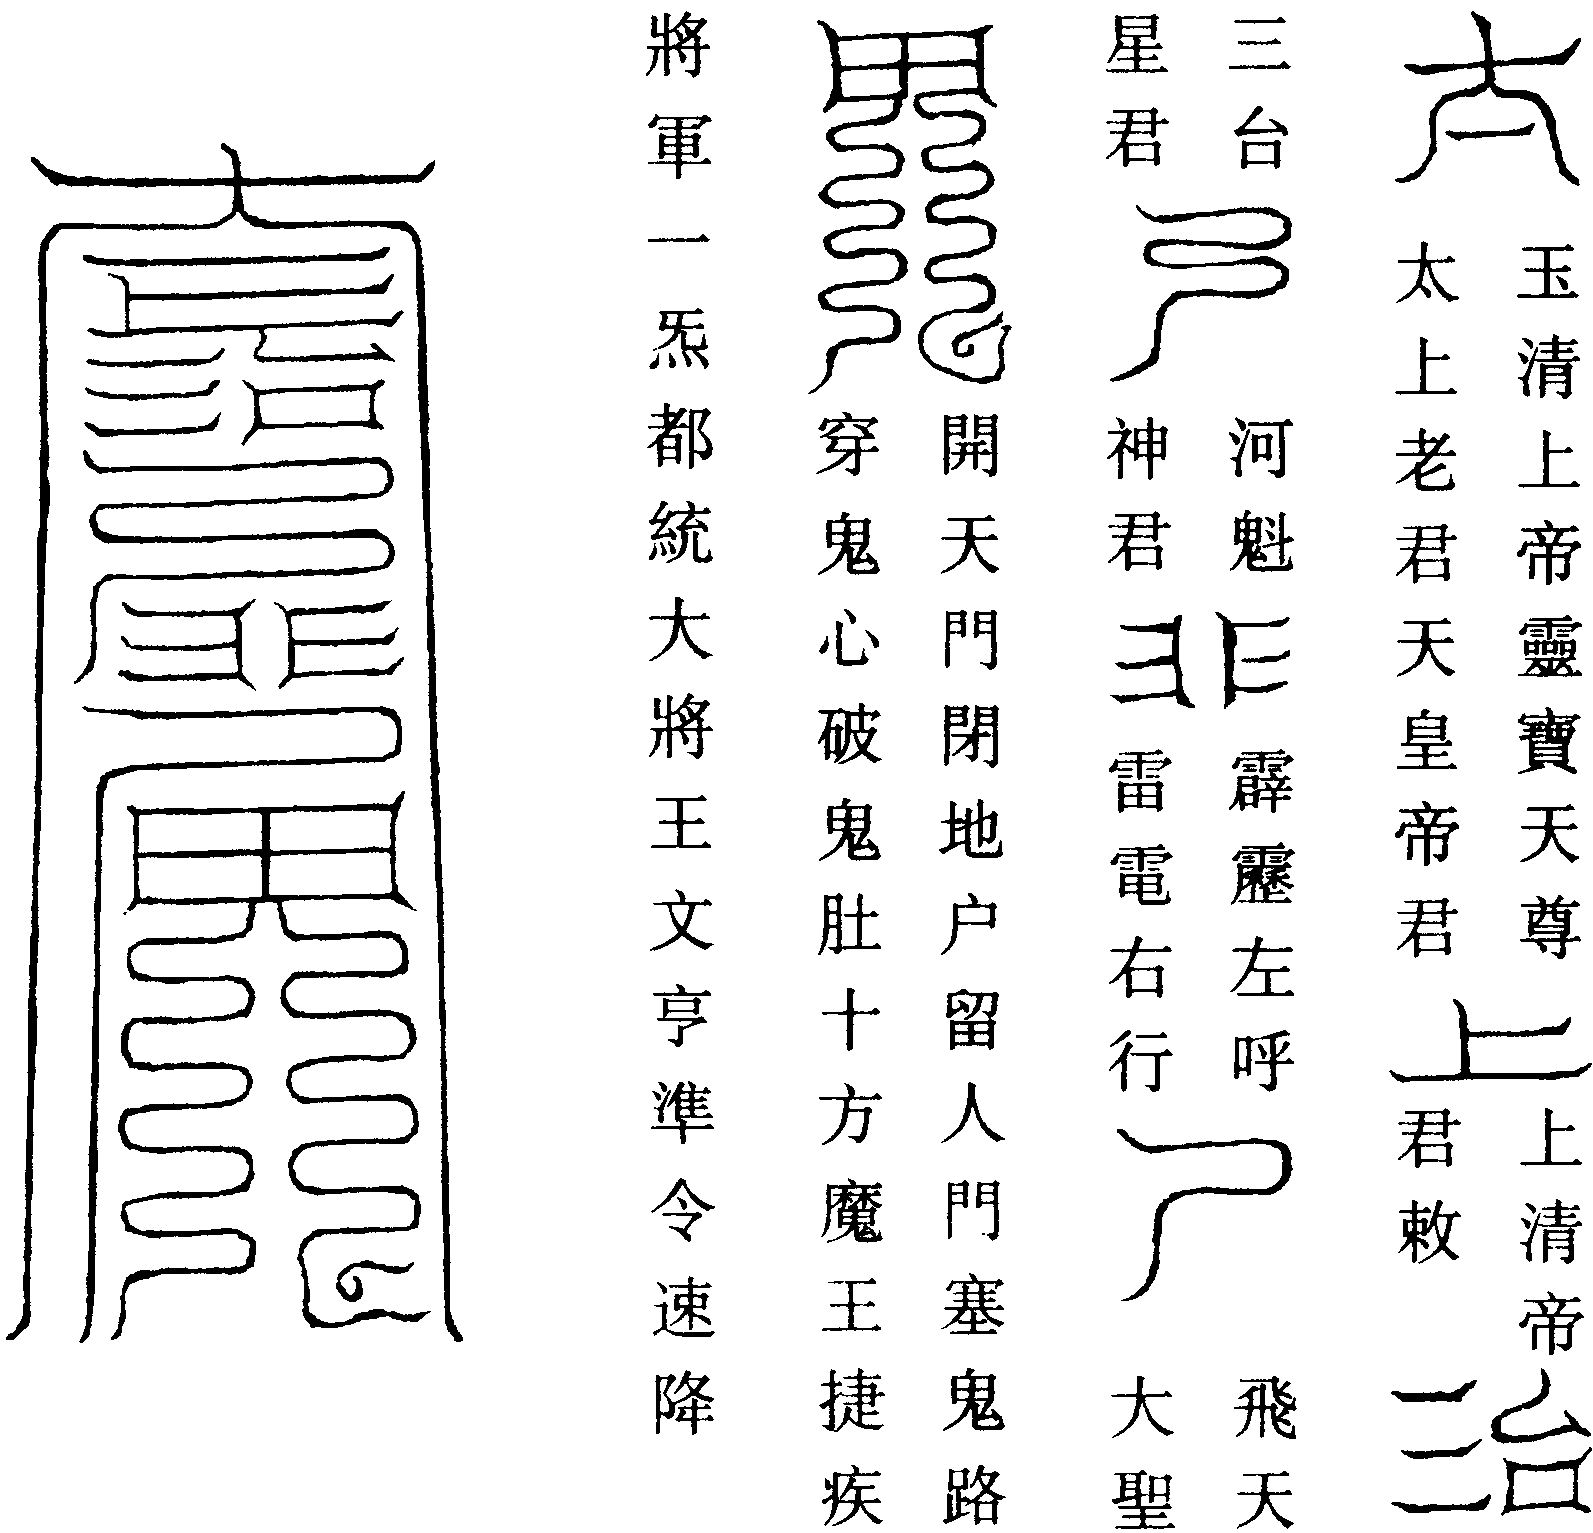 玉清上帝靈寶天尊
太上老君天皇帝君
上
上清帝
君敕
三台
星君
河魁
神君
霹靂左呼
雷電右行
飛天
大聖
開天門閉地户留人門塞鬼路
穿鬼心破鬼肚十方魔王捷疾
將軍一炁都統大將王文亨準令速降